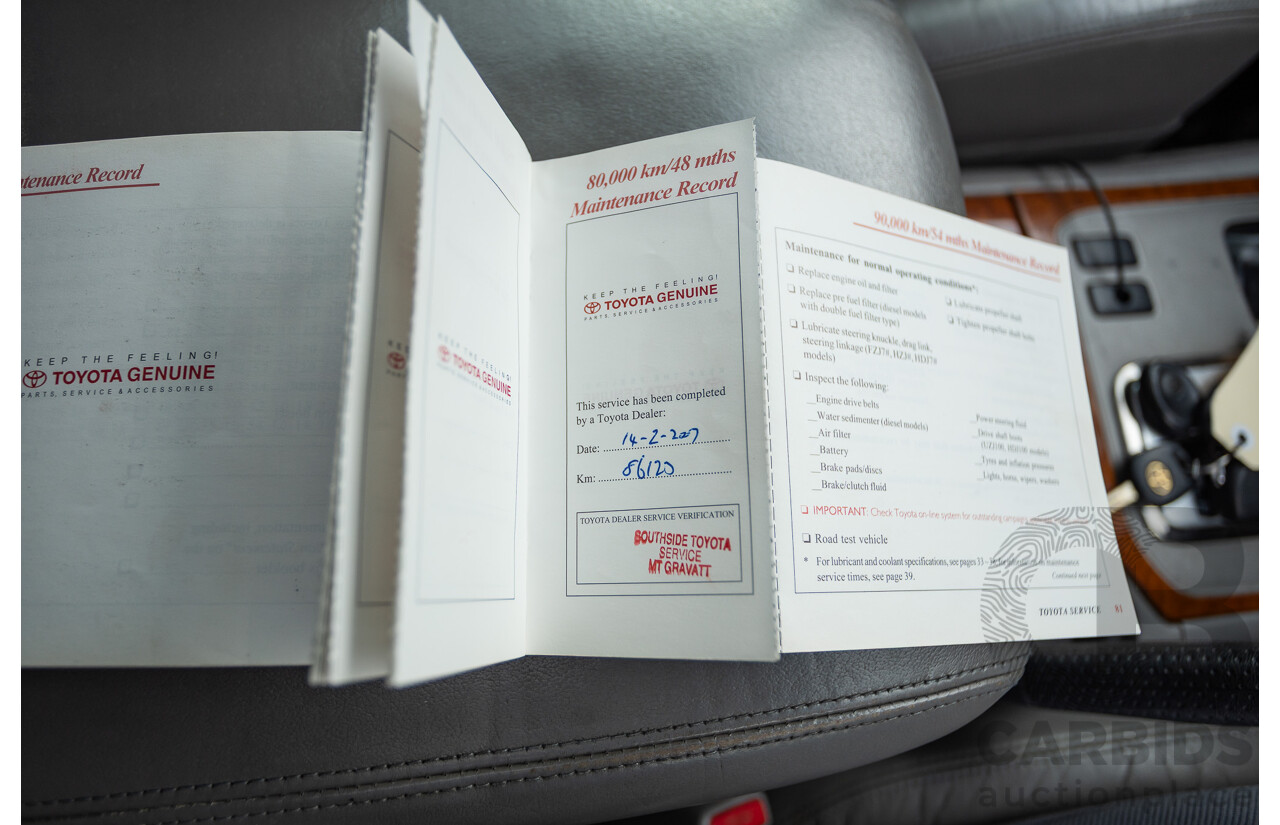 ntenance Record
KEEP THE FEELING!
TOYOTA GENUINE
PARTS, SERVICE & ACCESSORIES
KEEP THE FEELING!
TOYOTA GENUINE
PARTS, SERVICE & ACCESSORIES
80,000 km/48 mths
Maintenance Record
KEEP THE FEELING!
TOYOTA GENUINE
PARTS, SERVICE & ACCESSORIES
This service has been completed
by a Toyota Dealer:
Date: 14-2-2007
Km: 86120
TOYOTA DEALER SERVICE VERIFICATION
SOUTHSIDE TOYOTA
SERVICE
MT GRAVATT
90,000 km/54 mths Maintenance Record
Maintenance for normal operating conditions*:
Replace engine oil and filter
Replace pre fuel filter (diesel models
with double fuel filter type)
Lubricate steering knuckle, drag link,
steering linkage (FZJ7#, HZJ#, HDJ7#
models)
Lubricate propeller shaft
Tighten propeller shaft bolts
Inspect the following:
__Engine drive belts
__Water sedimenter (diesel models)
__Air filter
__Battery
__Brake pads/discs
__Brake/clutch fluid
__Power steering fluid
__Drive shaft boots
(UZJ100, HDJ100 models)
__Tyres and inflation pressures
__Lights, horns, wipers, washers
IMPORTANT: Check Toyota on-line system for outstanding campaigns
Road test vehicle
* For lubricant and coolant specifications, see pages 33 - maintenance
service times, see page 39.
Continued next page
TOYOTA SERVICE 81
CARBIDS
auctionplace